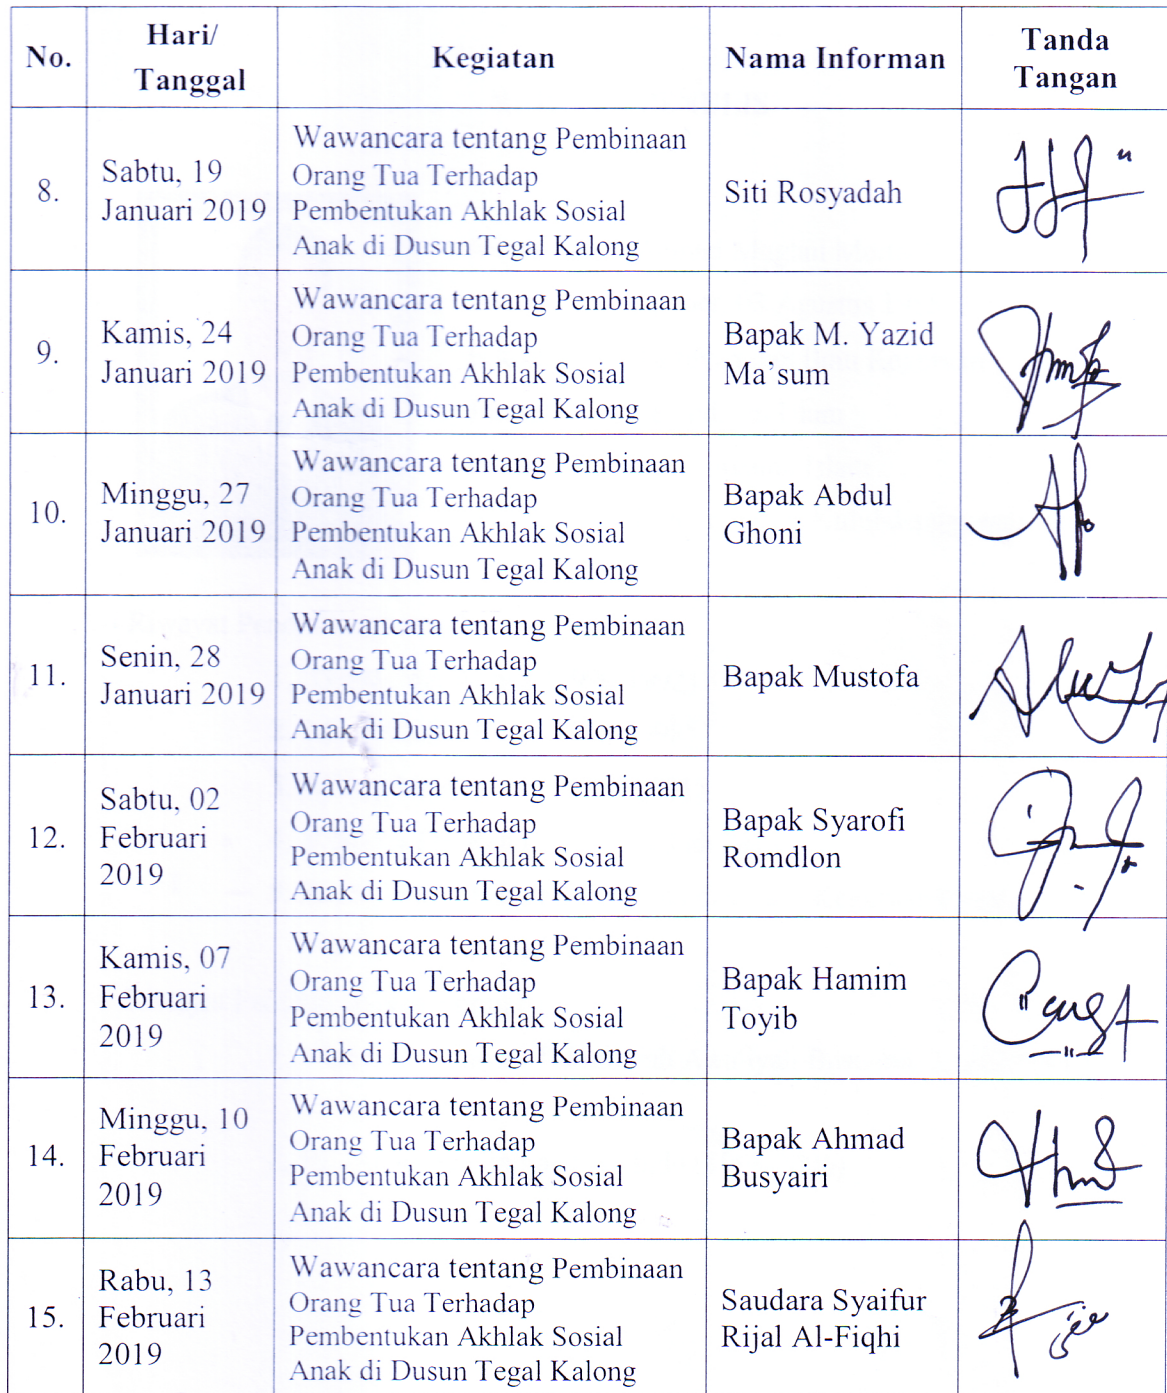 No.
Hari/
Tanggal
Kegiatan
Nama Informan
Tanda
Tangan
8.
Sabtu, 19
Januari 2019
Wawancara tentang Pembinaan
Orang Tua Terhadap
Pembentukan Akhlak Sosial
Anak di Dusun Tegal Kalong
Siti Rosyadah
9.
Kamis, 24
Januari 2019
Wawancara tentang Pembinaan
Orang Tua Terhadap
Pembentukan Akhlak Sosial
Anak di Dusun Tegal Kalong
Bapak M. Yazid
Ma'sum
10.
Minggu, 27
Januari 2019
Wawancara tentang Pembinaan
Orang Tua Terhadap
Pembentukan Akhlak Sosial
Anak di Dusun Tegal Kalong
Bapak Abdul
Ghoni
11.
Senin, 28
Januari 2019
Wawancara tentang Pembinaan
Orang Tua Terhadap
Pembentukan Akhlak Sosial
Anak di Dusun Tegal Kalong
Bapak Mustofa
12.
Sabtu, 02
Februari
2019
Wawancara tentang Pembinaan
Orang Tua Terhadap
Pembentukan Akhlak Sosial
Anak di Dusun Tegal Kalong
Bapak Syarofi
Romdlon
13.
Kamis, 07
Februari
2019
Wawancara tentang Pembinaan
Orang Tua Terhadap
Pembentukan Akhlak Sosial
Anak di Dusun Tegal Kalong
Bapak Hamim
Toyib
14.
Minggu, 10
Februari
2019
Wawancara tentang Pembinaan
Orang Tua Terhadap
Pembentukan Akhlak Sosial
Anak di Dusun Tegal Kalong
Bapak Ahmad
Busyairi
15.
Rabu, 13
Februari
2019
Wawancara tentang Pembinaan
Orang Tua Terhadap
Pembentukan Akhlak Sosial
Anak di Dusun Tegal Kalong
Saudara Syaifur
Rijal Al-Fiqhi